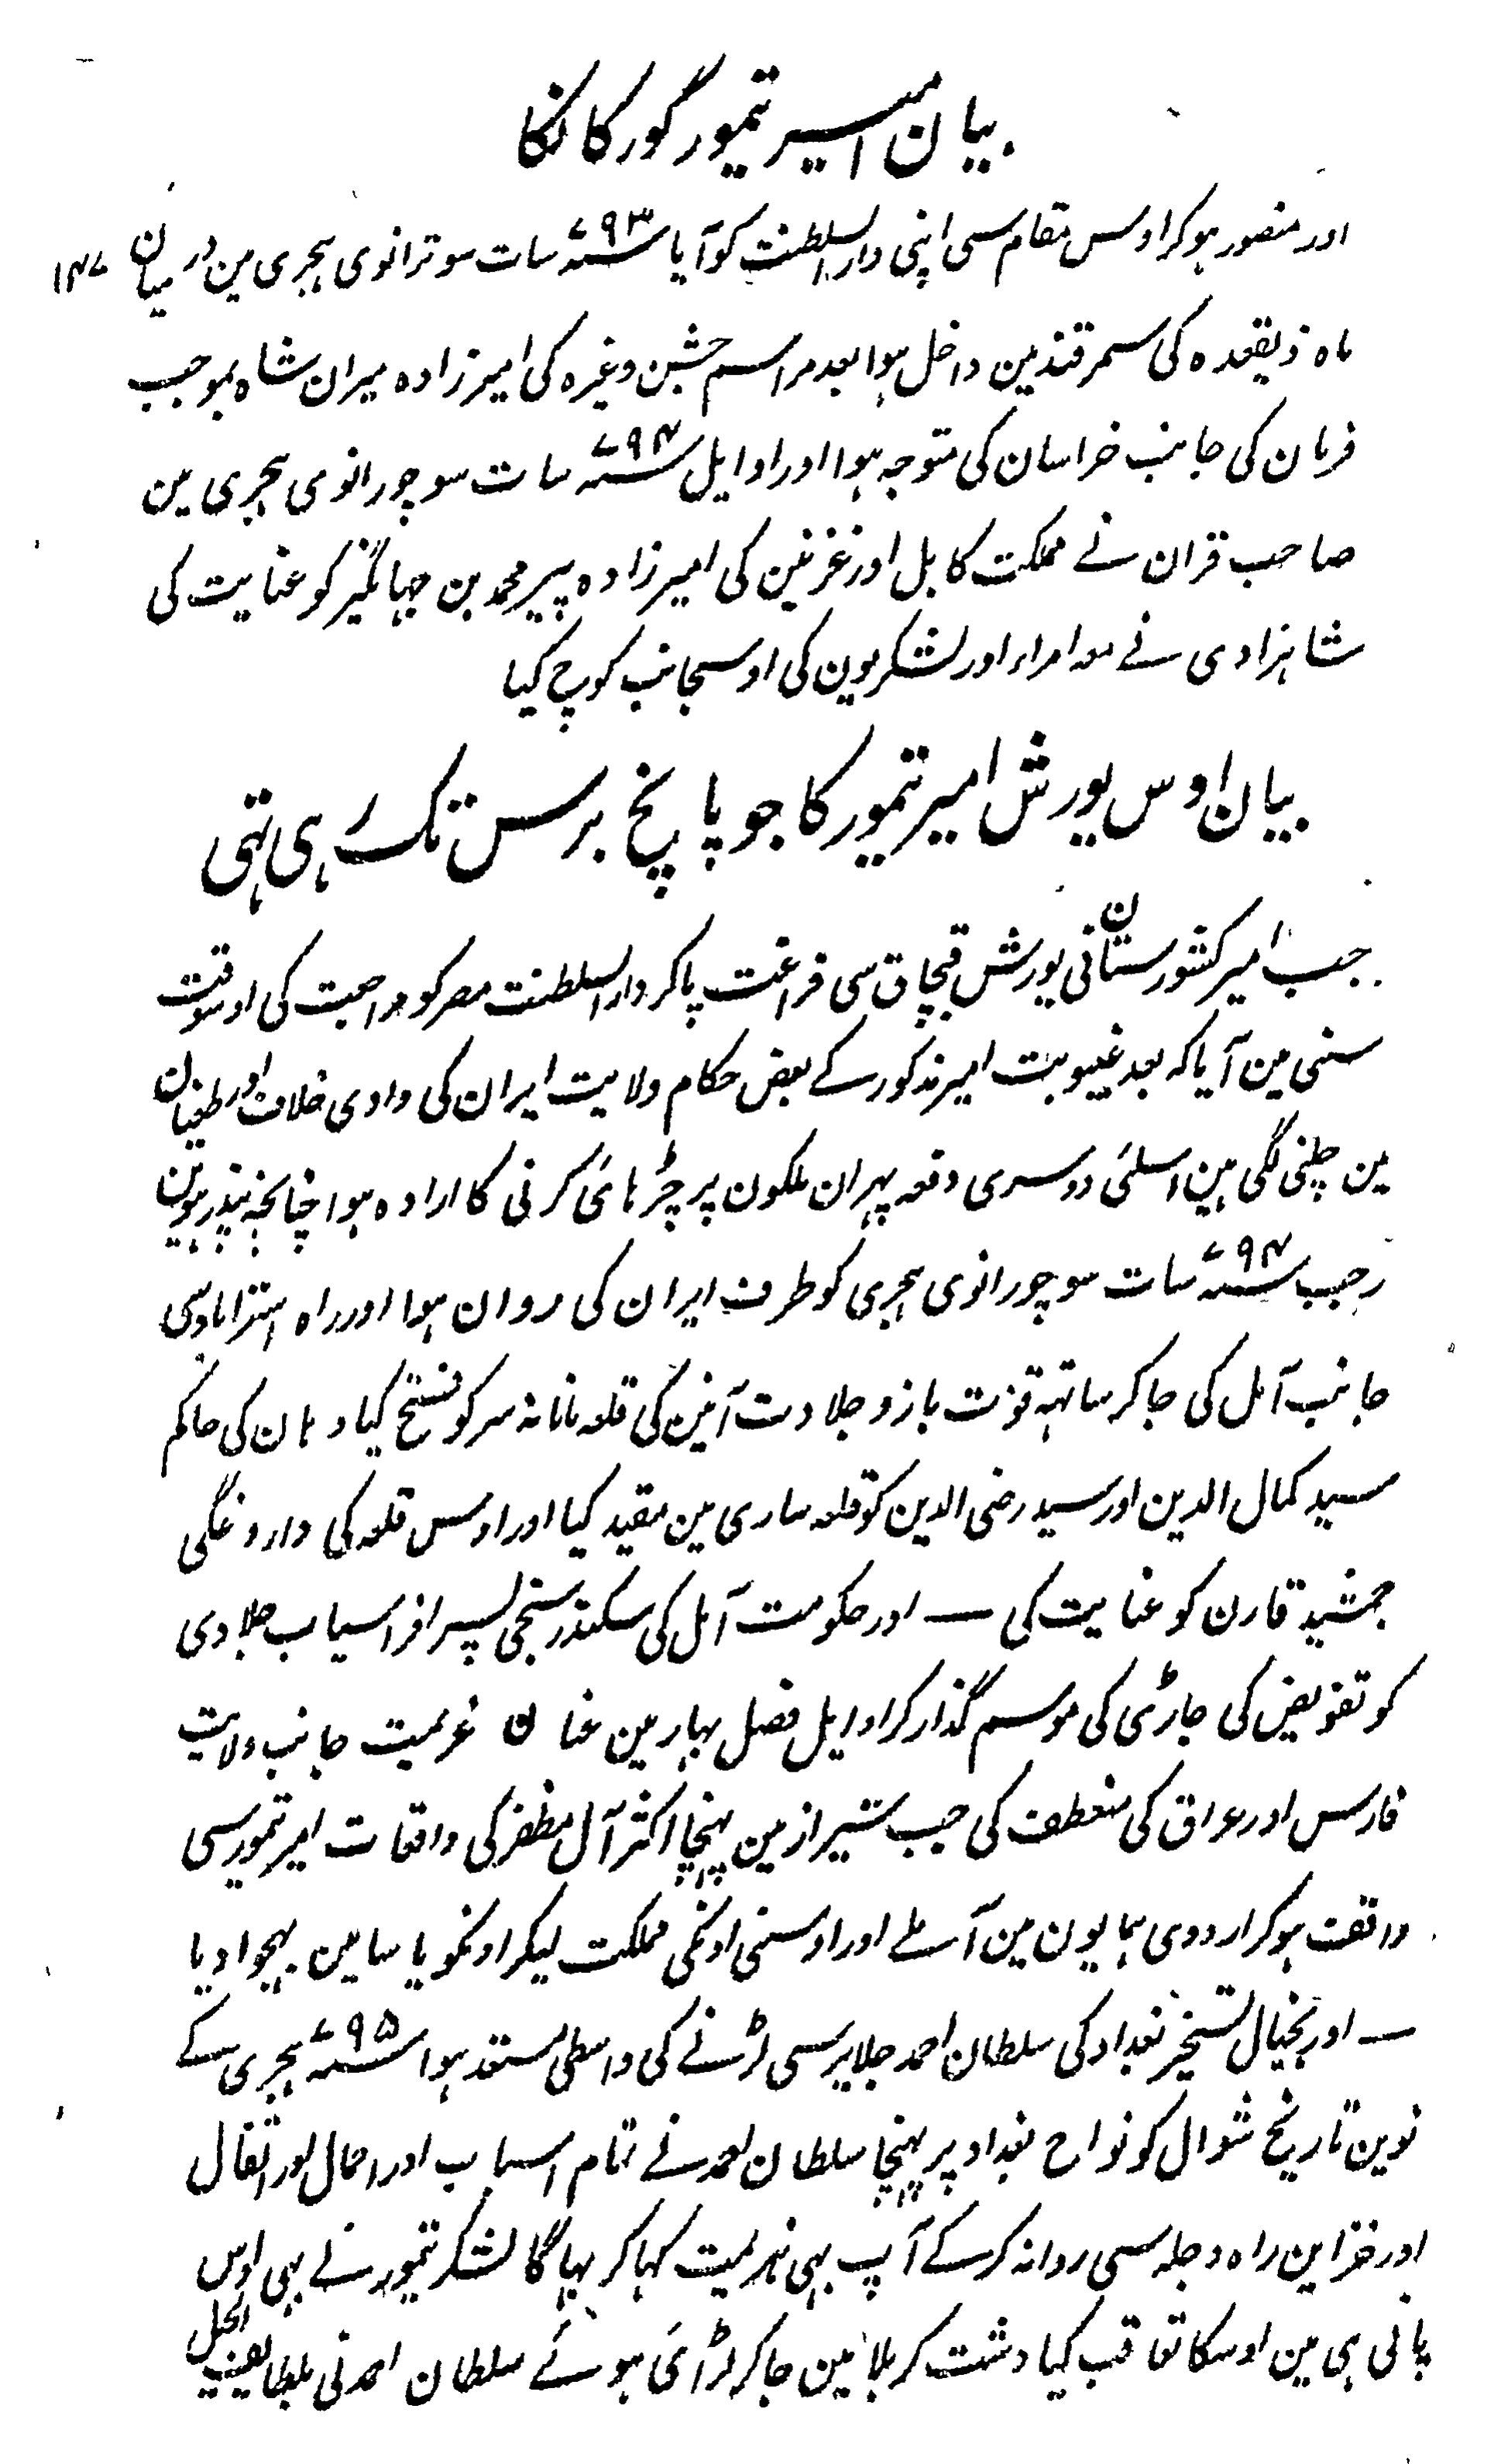 بیان امیر تیمور گورکانکا
اور منصور ہوکر اوس مقام سی اپنی دارالسلطنت کو آیا ۷۹۳؁ سات سو ترانوی ہجری مین درمیان
۱۴۷
ماہ ذیقعدہ کی سمرقند مین داخل ہوا بعد مراسم جشن وغیرہ کی امیرزادہ میران شاہ بموجب
فرمان کی جانب خراسان کی متوجہ ہوا اور اوایل ۷۹۴؁ سات سو چورانوی ہجری مین
صاحب قران نے مملکت کابل اور غزنین کی امیرزادہ پیر محمد بن جہانگیر کو عنایت کی
شاہزادی نے معہ امراء اور لشکریون کی اوسجانب کوچ کیا
بیان اوس یورش امیر تیمور کا جو پانچ برس تک رہی تہی
جب امیر کشورستان نی یورش قبچاق سی فراغت پاکر دارالسلطنت مصر کو مراجعت کی اوسوقت
سننی مین آیا کہ بعد غیبوبت امیر مذکور کے بعض حکام ولایت ایران کی وادی خلاف اور طغیان
مین چلنی لگی ہین اسلئی دوسری دفعہ پہر ان ملکون پر چڑہائی کرنی کا ارادہ ہوا چنانچہ پندرہوین
رجب ۷۹۴؁ سات سو چورانوی ہجری کو طرف ایران کی روان ہوا اور راہ استراباد سی
جانب آمل کی جاکر ساتہہ قوت بازو جلادت آئین کی قلعہ ماہانہ سر کو فتح کیا وہان کی حاکم
سید کمال الدین اور سید رضی الدین کو قلعہ ساری مین مقید کیا اور اوس قلعہ کی داروغگی
جمشید قارن کو عنایت کی ۔ اور حکومت آمل کی سکندر شیخی پسر افراسیاب جلادی
کو تفویض کی جاڑی کی موسم گذار کر اوایل فصل بہار مین عنان عزیمت جانب ولایت
فارس اور عراق کی منعطف کی جب شیراز مین پہنچا اکثر آل مظفر کی واقعات امیر تیمور سی
واقف ہوکر اردوی ہمایون مین آملے اور اوسنی اونکی مملکت لیکر اونکو یاسا مین بہجوادیا
۔ اور بخیال تسخیر بغداد کی سلطان احمد جلایر سی لڑنے کی واسطی مستعد ہوا ۷۹۵؁ ہجری کے
نوین تاریخ شوال کو نواح بغداد پر پہنچا سلطان احمد نے تمام اسباب اور احمال اور اثقال
اور خزاین راہ دجلہ سی روانہ کرکے آپ بہی ہزیمت کہاکر بہاگا لشکر تیمور نے بہی اوس
پانی ہی مین اوسکا تعاقب کیا دشت کربلا مین جاکر لڑائی ہوئے سلطان احمد نی بلطایف الحیل